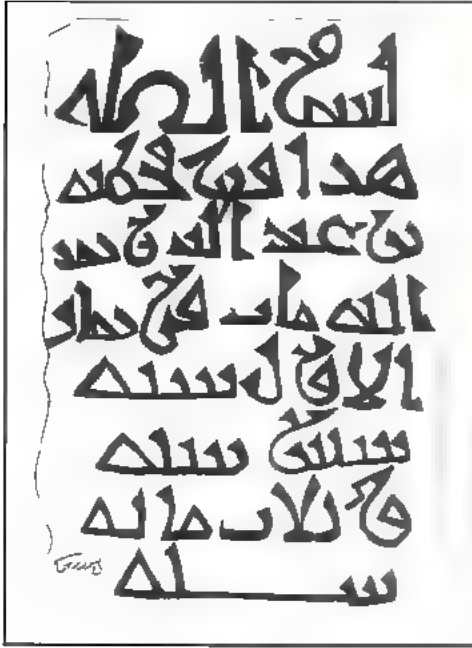 بسم الله
هدا قبر
بن عبد الله بن عبد
الله مات في
الاول سنه
ستين سنه
و ثلاث مائه
سنه